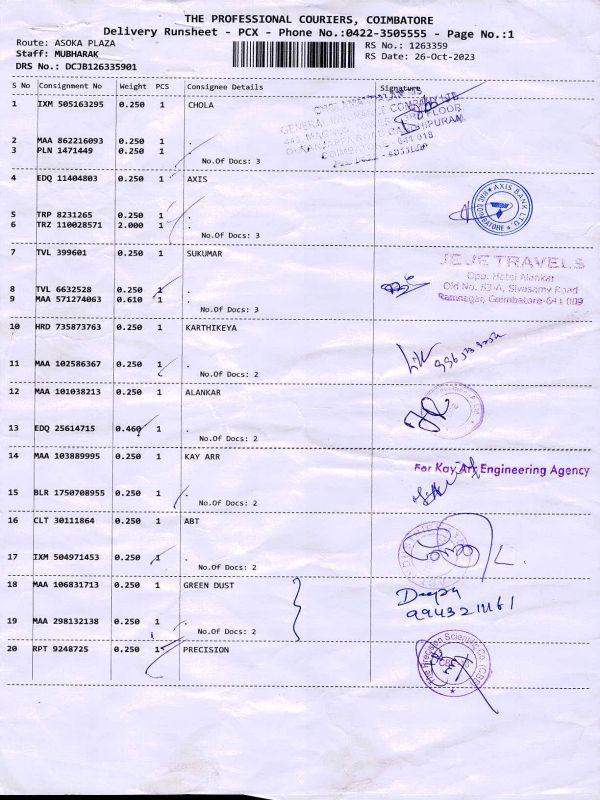 THE PROFESSIONAL COURIERS, COIMBATORE
Delivery Runsheet - PCX - Phone No.:0422-3505555 - Page No.:1
Route: ASOKA PLAZA RS No.: 1263359
Staff: MUBHARAK RS Date: 26-Oct-2023
DRS No.: DCJB126335901
S No Consignment No Weight PCS Consignee Details Signature
1 IXM 505163295 0.250 1 CHOLA
2 MAA 862216093 0.250 1 .
3 PLN 1471449 0.250 1 .
No.Of Docs: 3
4 EDQ 11404803 0.250 1 AXIS
AXIS BANK LTD.
5 TRP 8231265 0.250 1 .
6 TRZ 110028571 2.000 1 .
No.Of Docs: 3
7 TVL 399601 0.250 1 SUKUMAR
JEJE TRAVELS
Opp. Hotel Alankar
Old No. 53-A, Sivasamy Road
Ramnagar, Coimbatore-641 009
8 TVL 6632528 0.250 1 .
9 MAA 571274063 0.610 1 .
No.Of Docs: 3
10 HRD 735873763 0.250 1 KARTHIKEYA
11 MAA 102586367 0.250 1 .
No.Of Docs: 2
12 MAA 101038213 0.250 1 ALANKAR
13 EDQ 25614715 0.460 1 .
No.Of Docs: 2
14 MAA 103889995 0.250 1 KAY ARR
For Kay Arr Engineering Agency
15 BLR 1750708955 0.250 1 .
No.Of Docs: 2
16 CLT 30111864 0.250 1 ABT
17 IXM 504971453 0.250 1 .
No.Of Docs: 2
18 MAA 106831713 0.250 1 GREEN DUST
Deepa
19 MAA 298132138 0.250 1 .
No.Of Docs: 2
20 RPT 9248725 0.250 1 PRECISION